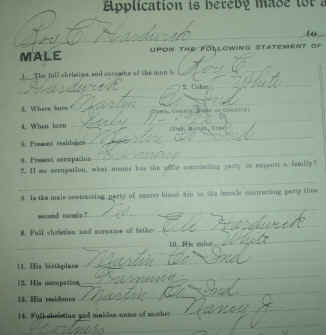 Application is hereby made for a
Roy E Hardwick to
MALE UPON THE FOLLOWING STATEMENT OF
1. The full christian and surname of the man is Roy E.
Hardwick 2. Color White
3. Where born Martin Co Ind
(Town, County, State or Country)
4. When born July
(Day, Month, Year)
5. Present residence Martin Co Ind
6. Present occupation Farming
7. If no occupation, what means has the male contracting party to support a family?
8. Is the male contracting party of nearer blood kin to the female contracting party than
second cousin? No
9. Full christian and surname of father Eli Hardwick
10. His color White
11. His birthplace Martin Co Ind
12. His occupation Farming
13. His residence Martin Co Ind
14. Full christian and maiden name of mother Nancy J